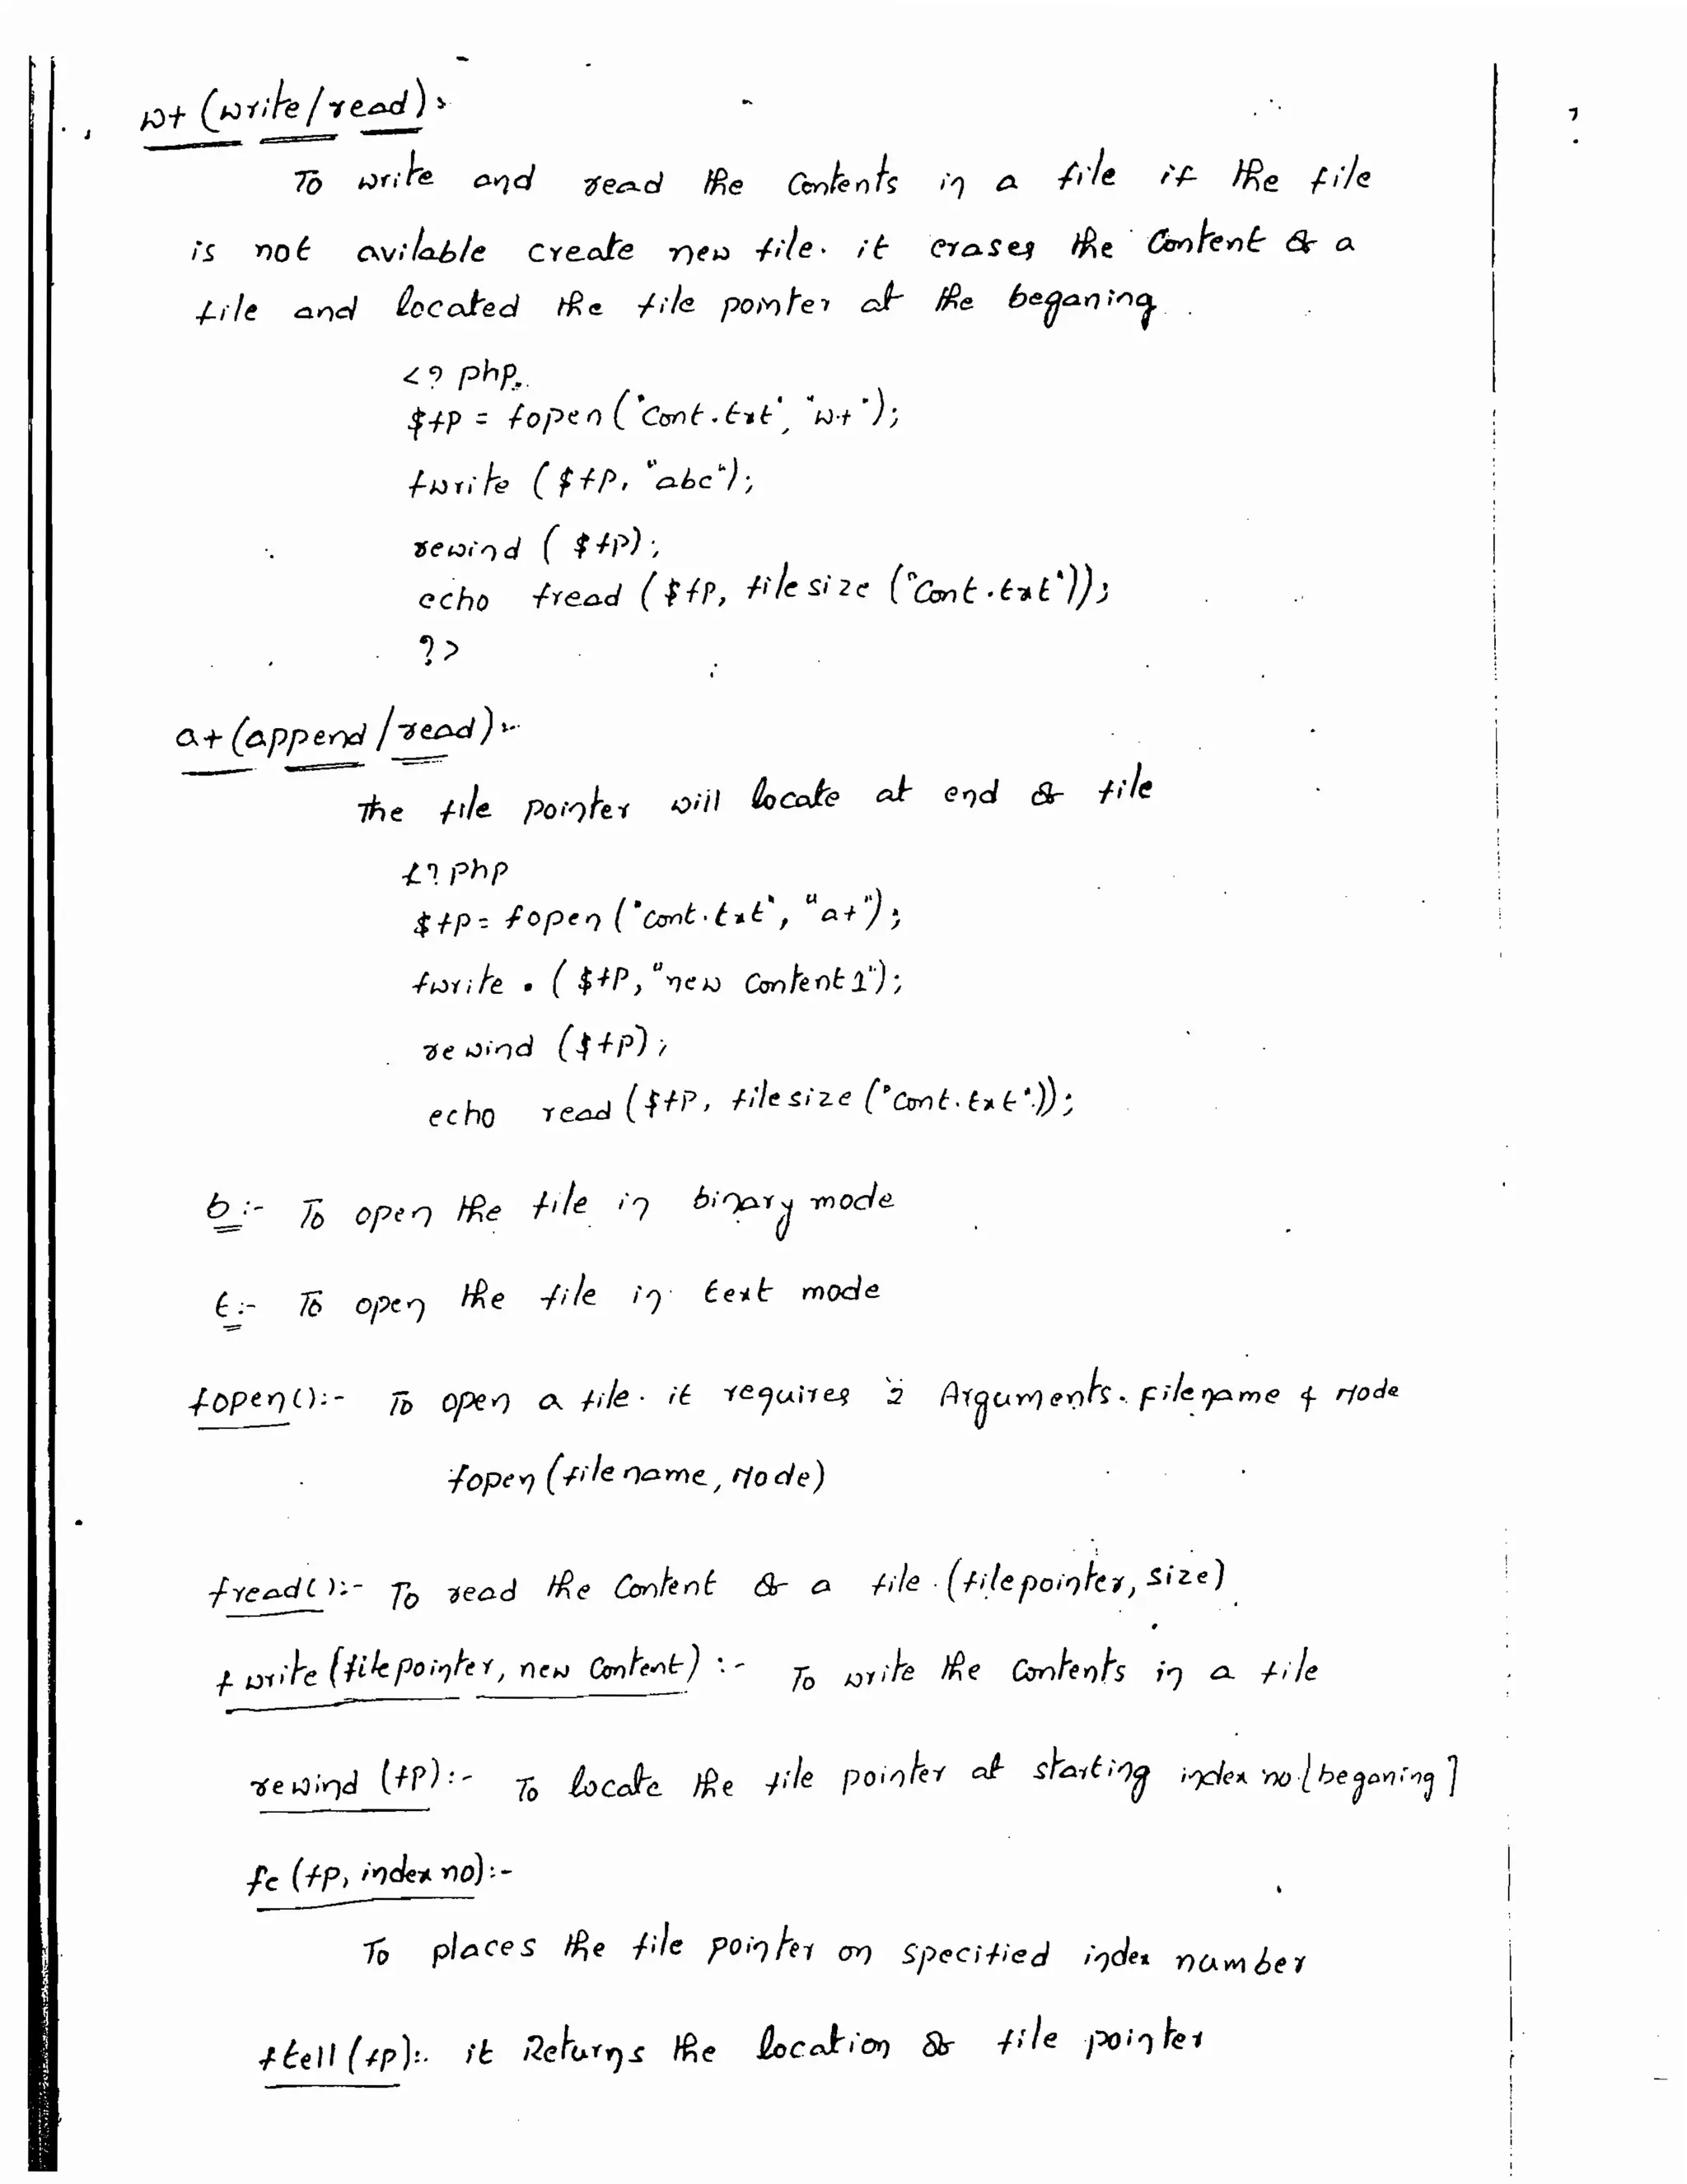 w+ (write/read):-
To write and read the Contents in a file if the file
is not avilable create new file. it erases the Content of a
file and located the file pointer at the beganing
<? php
$fp = fopen ("Cont.txt", "w+");
fwrite ($fp, "abc");
rewind ( $fp);
echo fread ($fp, filesize ("Cont.txt"));
?>
a+ (append/read):-
The file pointer will locate at end of file
<? php
$fp = fopen ("cont.txt", "a+");
fwrite . ( $fp, "new Content1");
rewind ($fp);
echo read ($fp, filesize ("cont.txt"));
b :- To open the file in binary mode
t :- To open the file in text mode
fopen():- To open a file. it requires 2 Arguments. Filename & Mode
fopen (filename, Mode)
fread():- To read the Content of a file. (filepointer, size)
fwrite (filepointer, new Content) :- To write the Contents in a file
rewind (fp):- To locate the file pointer at starting index no.[beganing]
fc (fp, index no):-
To places the file pointer on specified index number
ftell (fp):. it Returns the location of file pointer